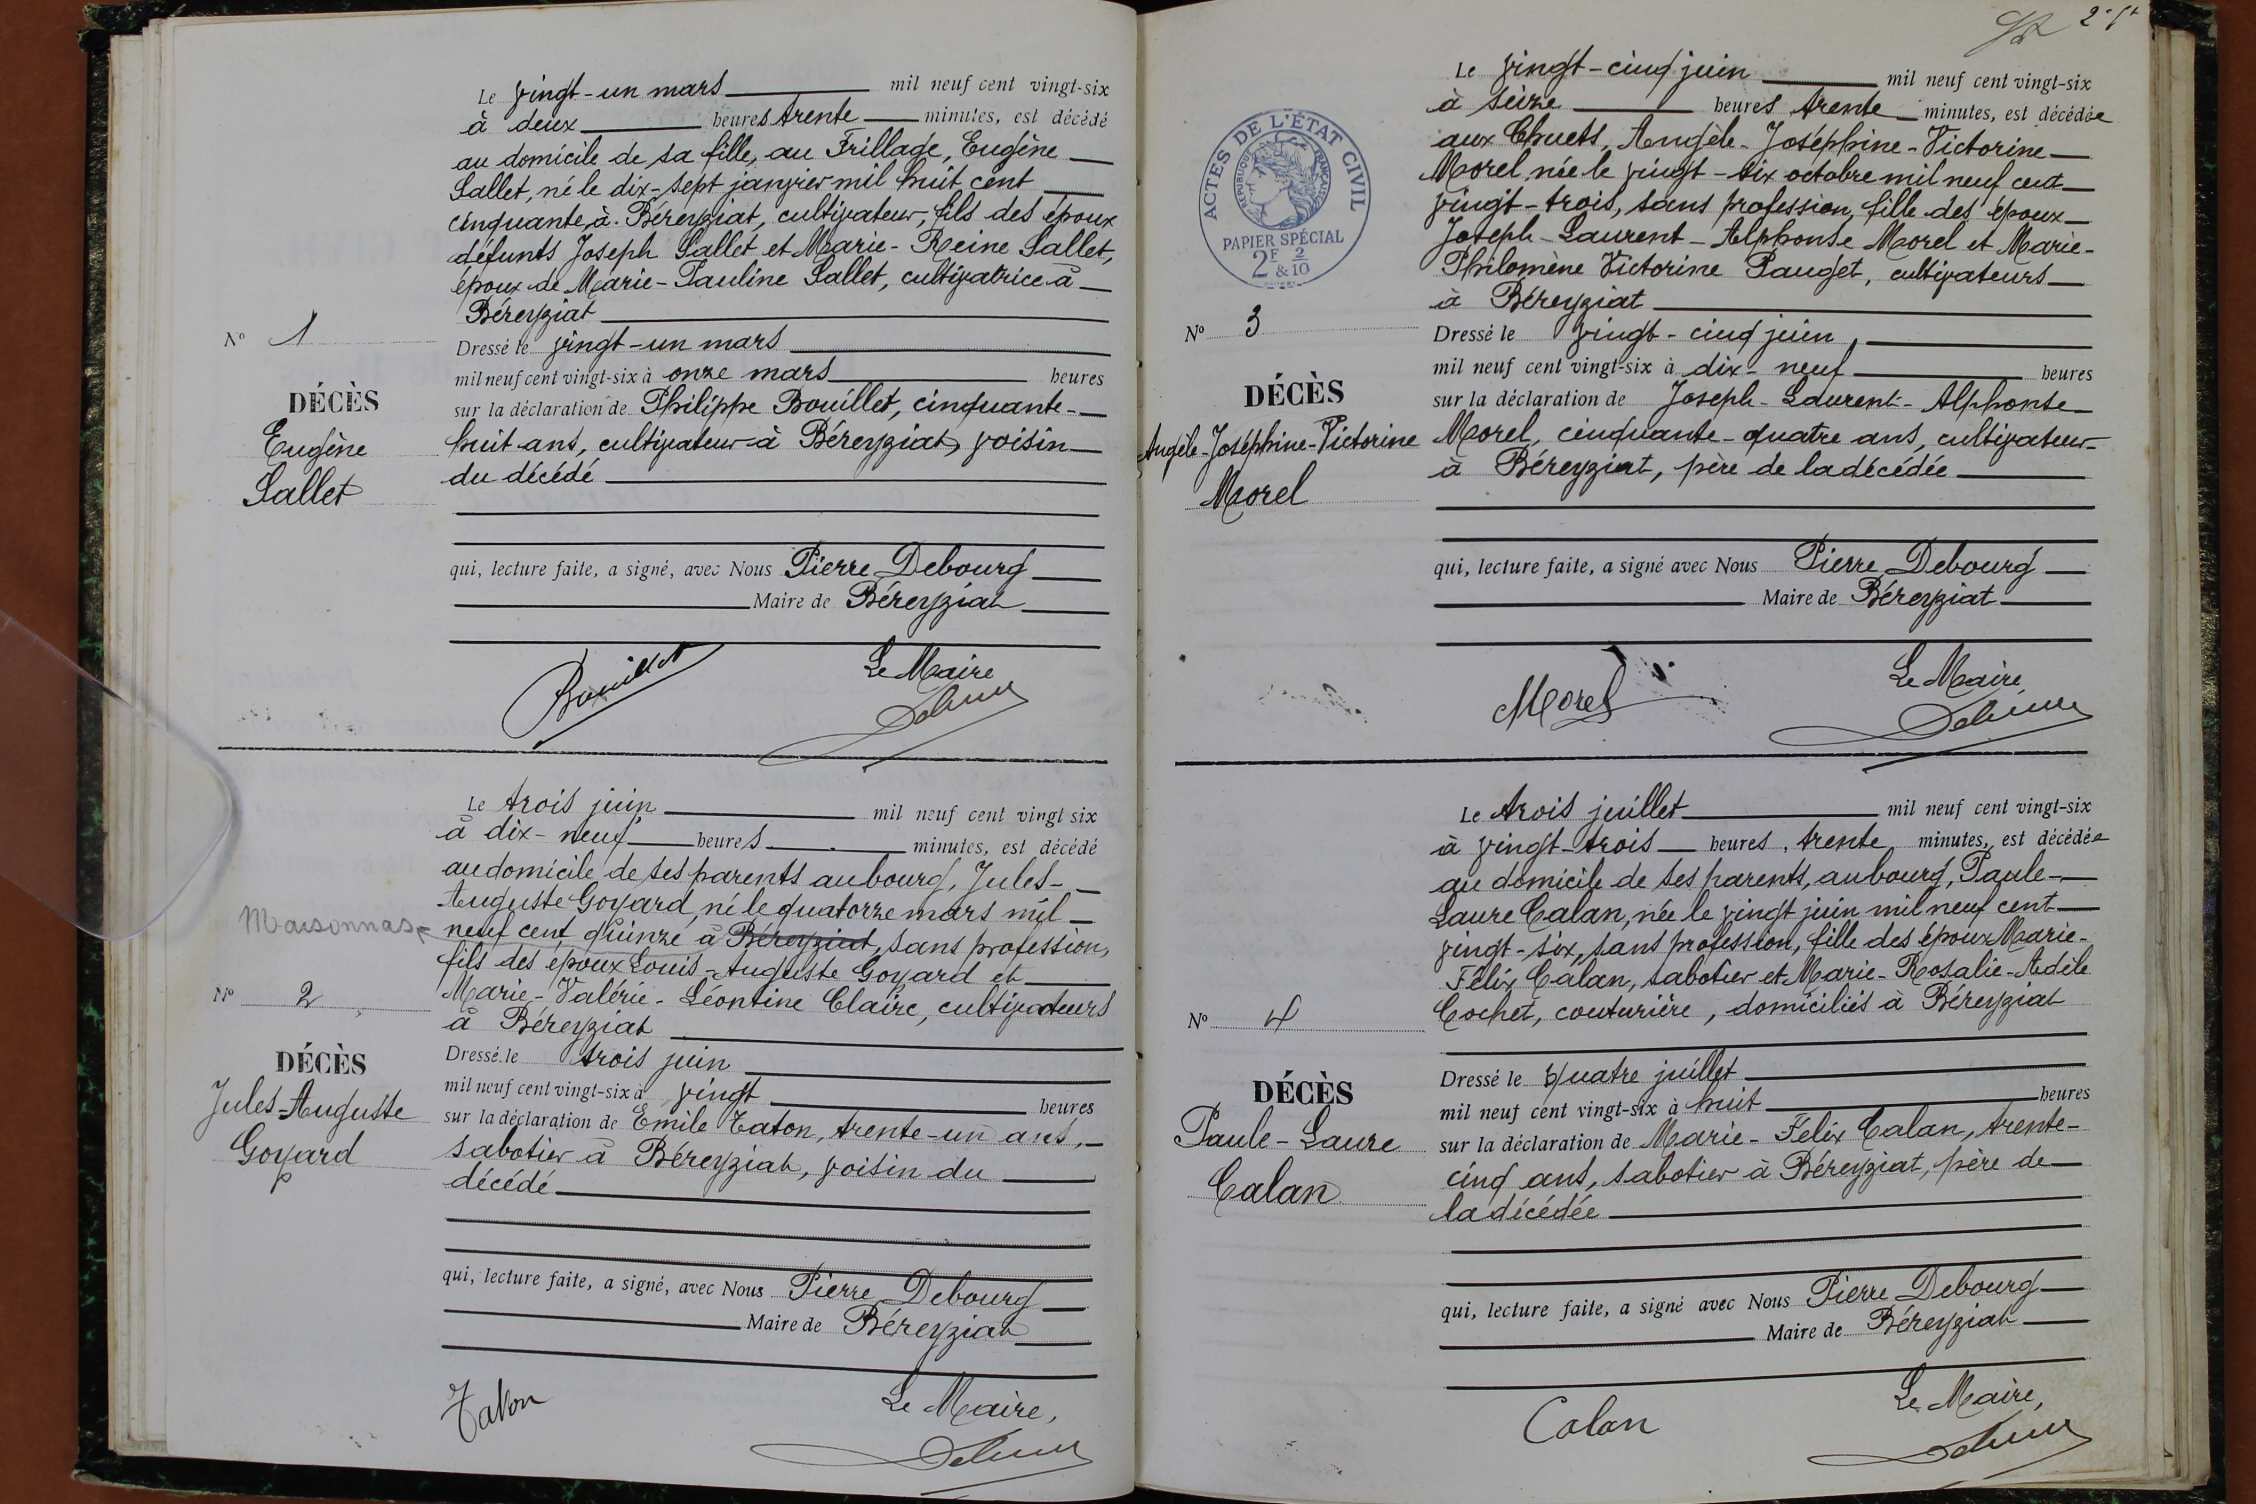 Le vingt-un mars mil neuf cent vingt-six
à deux heures trente minutes, est décédé
au domicile de sa fille, au Frillage, Eugène
Sallet, né le dix-sept janvier mil huit cent
cinquante, à Béreyziat, cultivateur, fils des époux
défunts Joseph Sallet et Marie-Reine Sallet,
époux de Marie-Pauline Sallet, cultivatrice à
Béreyziat
Nº 1
Dressé le vingt-un mars
mil neuf cent vingt-six à onze mars heures
DÉCÈS
sur la déclaration de Philippe Bouillet, cinquante-
Eugène
huit ans, cultivateur à Béreyziat, voisin
Sallet
du décédé
qui, lecture faite, a signé, avec Nous Pierre Debourg
Maire de Béreyziat
Bouillet
Le Maire
Le trois juin mil neuf cent vingt six
à dix-neuf heures minutes, est décédé
au domicile de ses parents au bourg, Jules-
Auguste Goyard, né le quatorze mars mil
Maisonnas
neuf cent quinze à Béreyziat, sans profession,
fils des époux Louis-Auguste Goyard et
Nº 2
Marie-Valérie-Léontine Claire, cultivateurs
à Béreyziat
DÉCÈS
Dressé le trois juin
mil neuf cent vingt-six à vingt heures
Jules-Auguste
sur la déclaration de Emile Taton, trente-un ans,
Goyard
sabotier à Béreyziat, voisin du
décédé
qui, lecture faite, a signé, avec Nous Pierre Debourg
Maire de Béreyziat
Taton
Le Maire,
ACTES DE L'ÉTAT CIVIL
RÉPUBLIQUE FRANÇAISE
PAPIER SPÉCIAL
2F & 2/10
Le vingt-cinq juin mil neuf cent vingt-six
à seize heures trente minutes, est décédée
aux Chuets, Angèle-Joséphine-Victorine
Morel, née le vingt-six octobre mil neuf cent
vingt-trois, sans profession, fille des époux
Joseph-Laurent-Alphonse Morel et Marie-
Philomène Victorine Pauget, cultivateurs
à Béreyziat
Nº 3
Dressé le vingt-cinq juin
mil neuf cent vingt-six à dix-neuf heures
DÉCÈS
sur la déclaration de Joseph-Laurent-Alphonse
Angèle-Joséphine-Victorine
Morel, cinquante-quatre ans, cultivateur
Morel
à Béreyziat, père de la décédée
qui, lecture faite, a signé avec Nous Pierre Debourg
Maire de Béreyziat
Morel
Le Maire
Le trois juillet mil neuf cent vingt-six
à vingt-trois heures, trente minutes, est décédée
au domicile de ses parents, au bourg, Paule-
Laure Calan, née le vingt juin mil neuf cent
vingt-six, sans profession, fille des époux Marie-
Félix Calan, sabotier et Marie-Rosalie-Adèle
Nº 4
Cochet, couturière, domiciliés à Béreyziat
DÉCÈS
Dressé le quatre juillet
mil neuf cent vingt-six à huit heures
Paule-Laure
sur la déclaration de Marie-Felix Calan, trente-
Calan
cinq ans, sabotier à Béreyziat, père de
la décédée
qui, lecture faite, a signé avec Nous Pierre Debourg
Maire de Béreyziat
Calan
Le Maire,